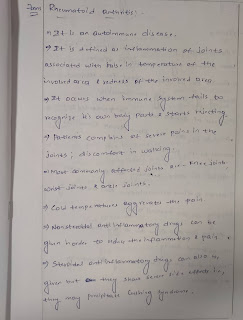 Rheumatoid Arthritis:-
→ It is an autoimmune disease.
→ It is defined as inflammation of joints
associated with raise in temperature of the
involved area & redness of the involved area.
→ It occurs when immune system fails to
recognise its own body parts & starts rejecting.
→ Patients complaint of severe pains in the
joints, discomfort in walking.
→ Most commonly affected joints are - knee joints
wrist joints & joints.
→ Cold temperatures aggrevate the pain.
→ Nonsteroidal antiinflammatory drugs can be
given inorder to the inflammation & pain
→ Steroidal antiinflammatory drugs can also be
given but they show side effects ie,
they may precipitate cushing syndrome.